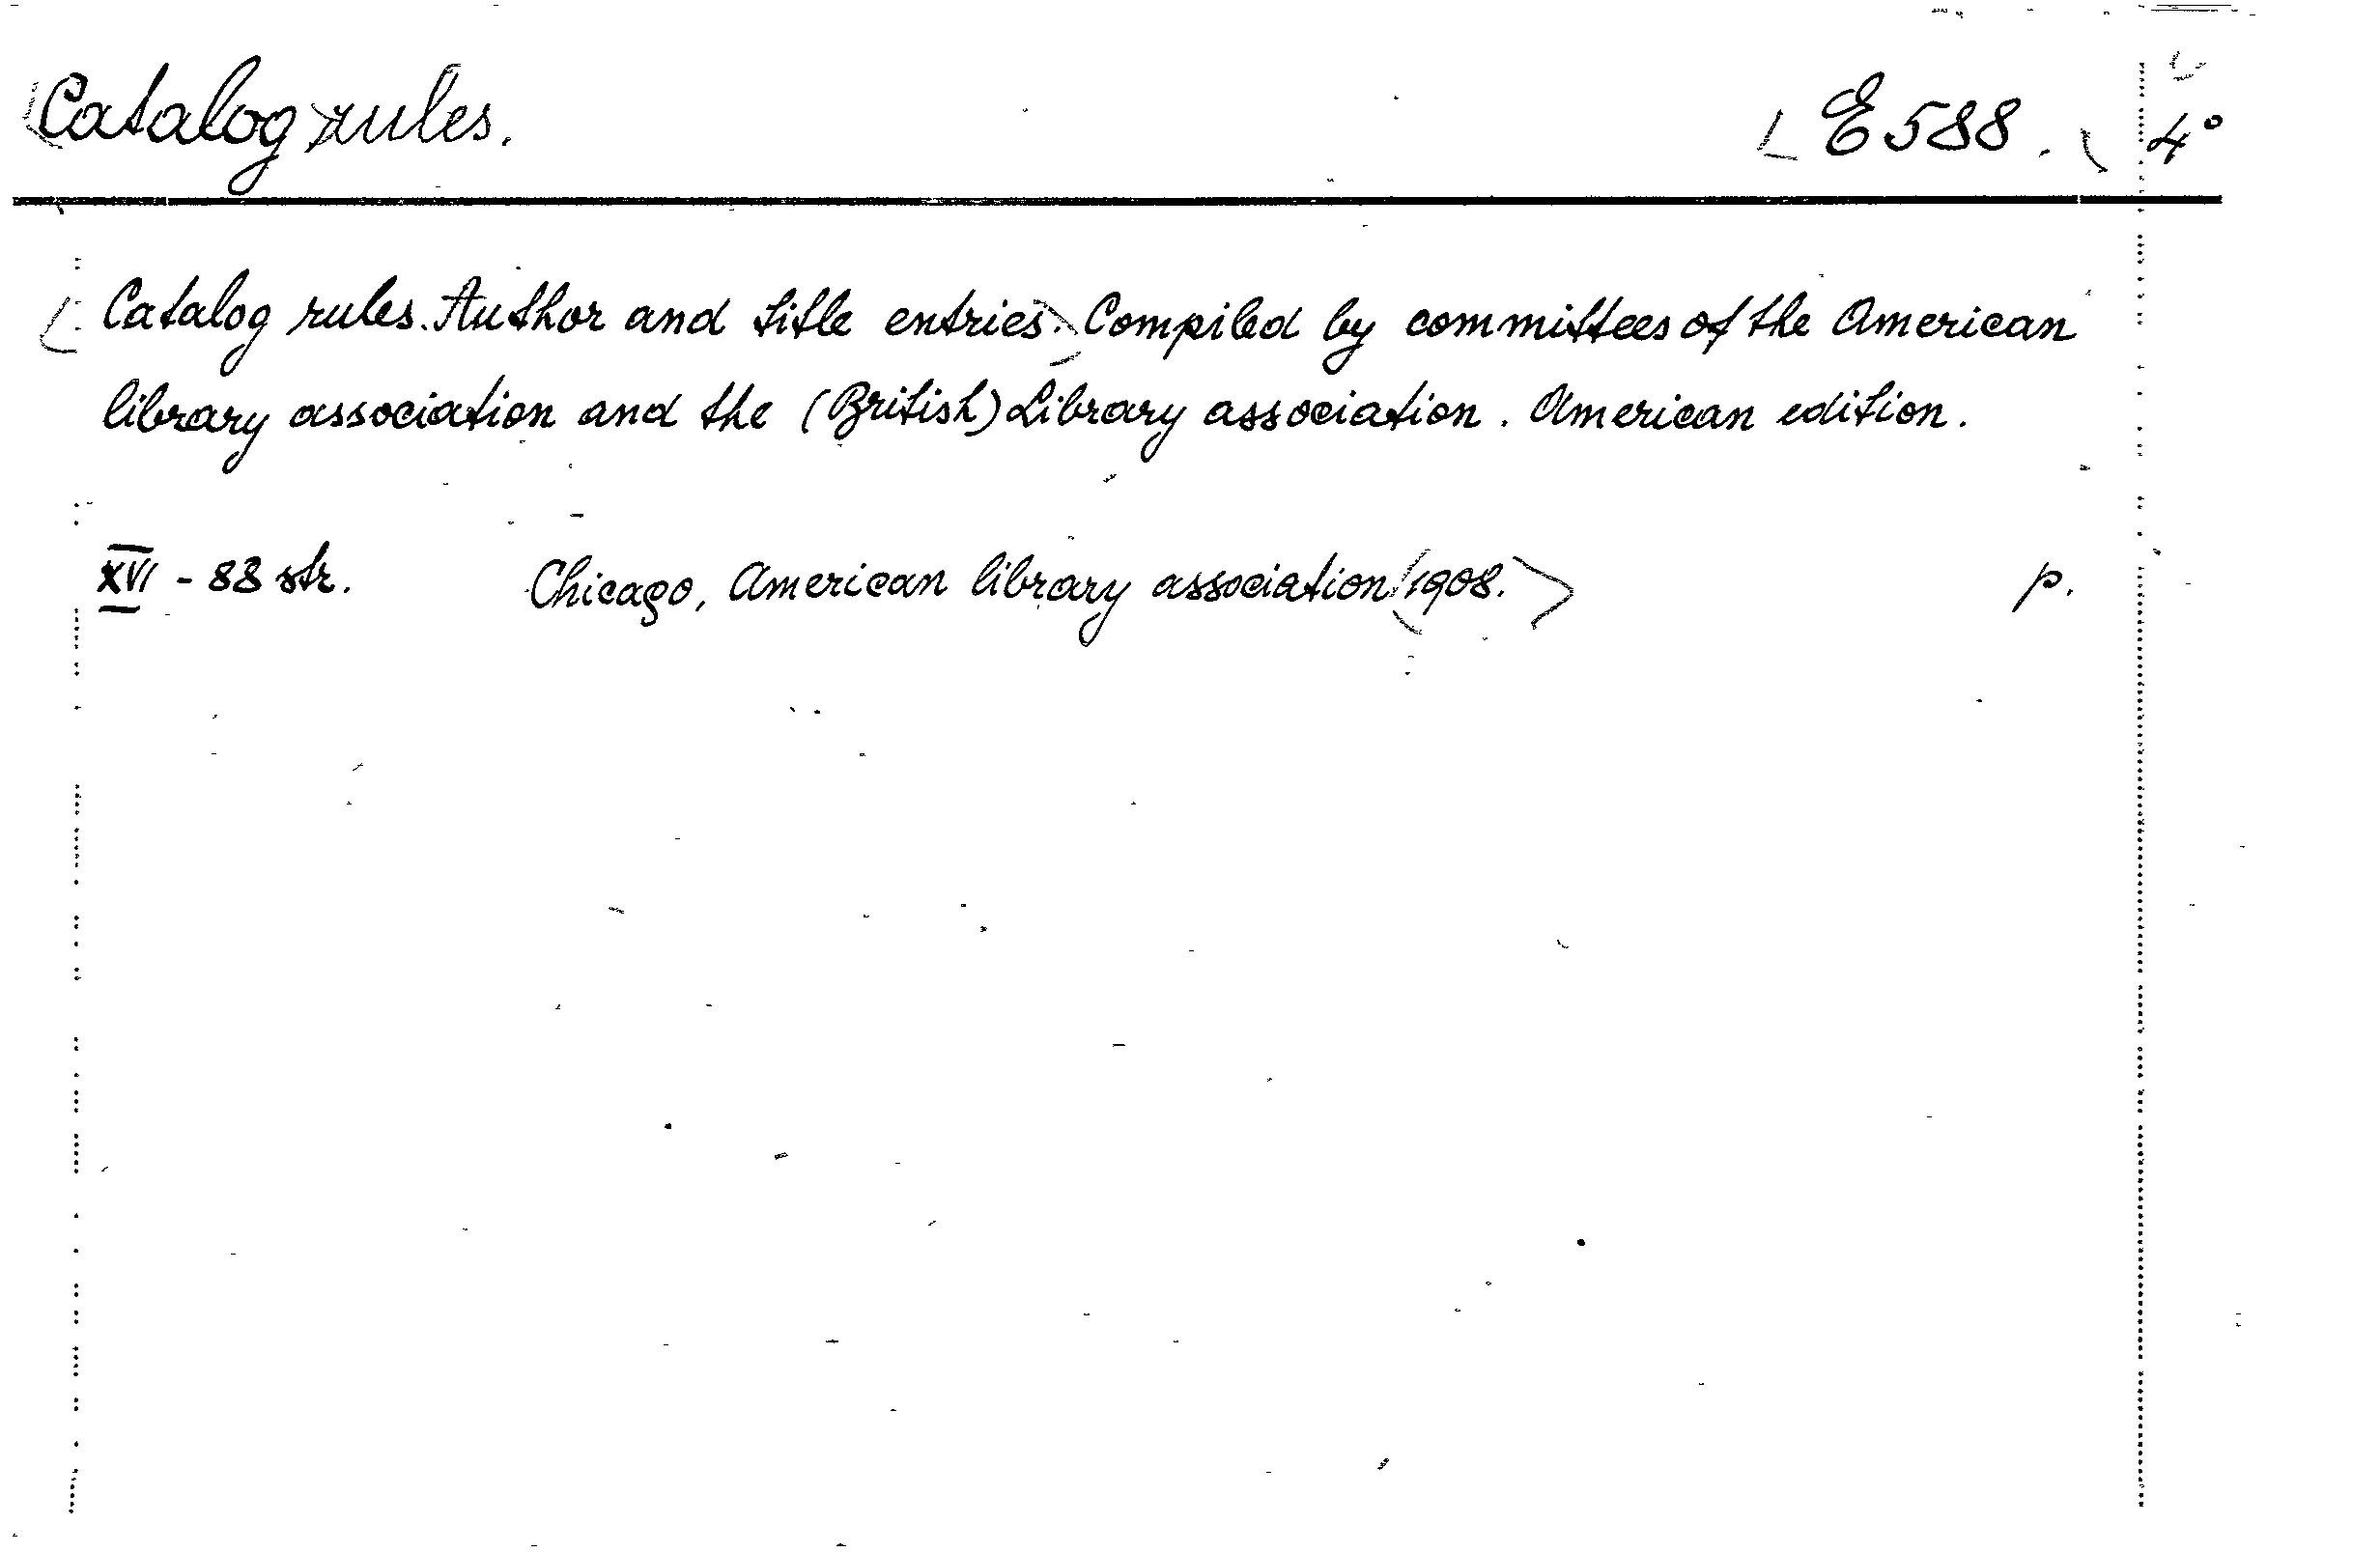 Catalog rules. E 588. 4°
Catalog rules. Author and title entries. Compiled by committees of the American
library association and the (British) Library association. American edition.
XVI - 88 str. Chicago, American library association 1908. p.